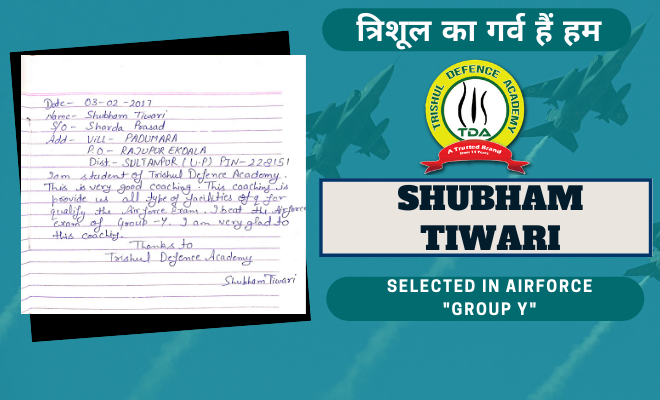 त्रिशूल का गर्व हैं हम
Date- 03-02-2017
Name- Shubham Tiwari
S/O- Sharda Prasad
Add- Vill- PADUMARA
P.O- RAJUPUR EKOALA
Dist- SULTANPUR (U.P) PIN-228151
I am student of Trishul Defence Academy.
This is very good coaching. This coaching is
provide us all type of facilities of q for
qualify the Airforce Exam. I beat the Airforce
exam of Group-Y. I am very glad to
this coaching.
Thanks to
Trishul Defence Academy
Shubham Tiwari
TRISHUL DEFENCE ACADEMY
TDA
A Trusted Brand
SHUBHAM
TIWARI
SELECTED IN AIRFORCE
"GROUP Y"